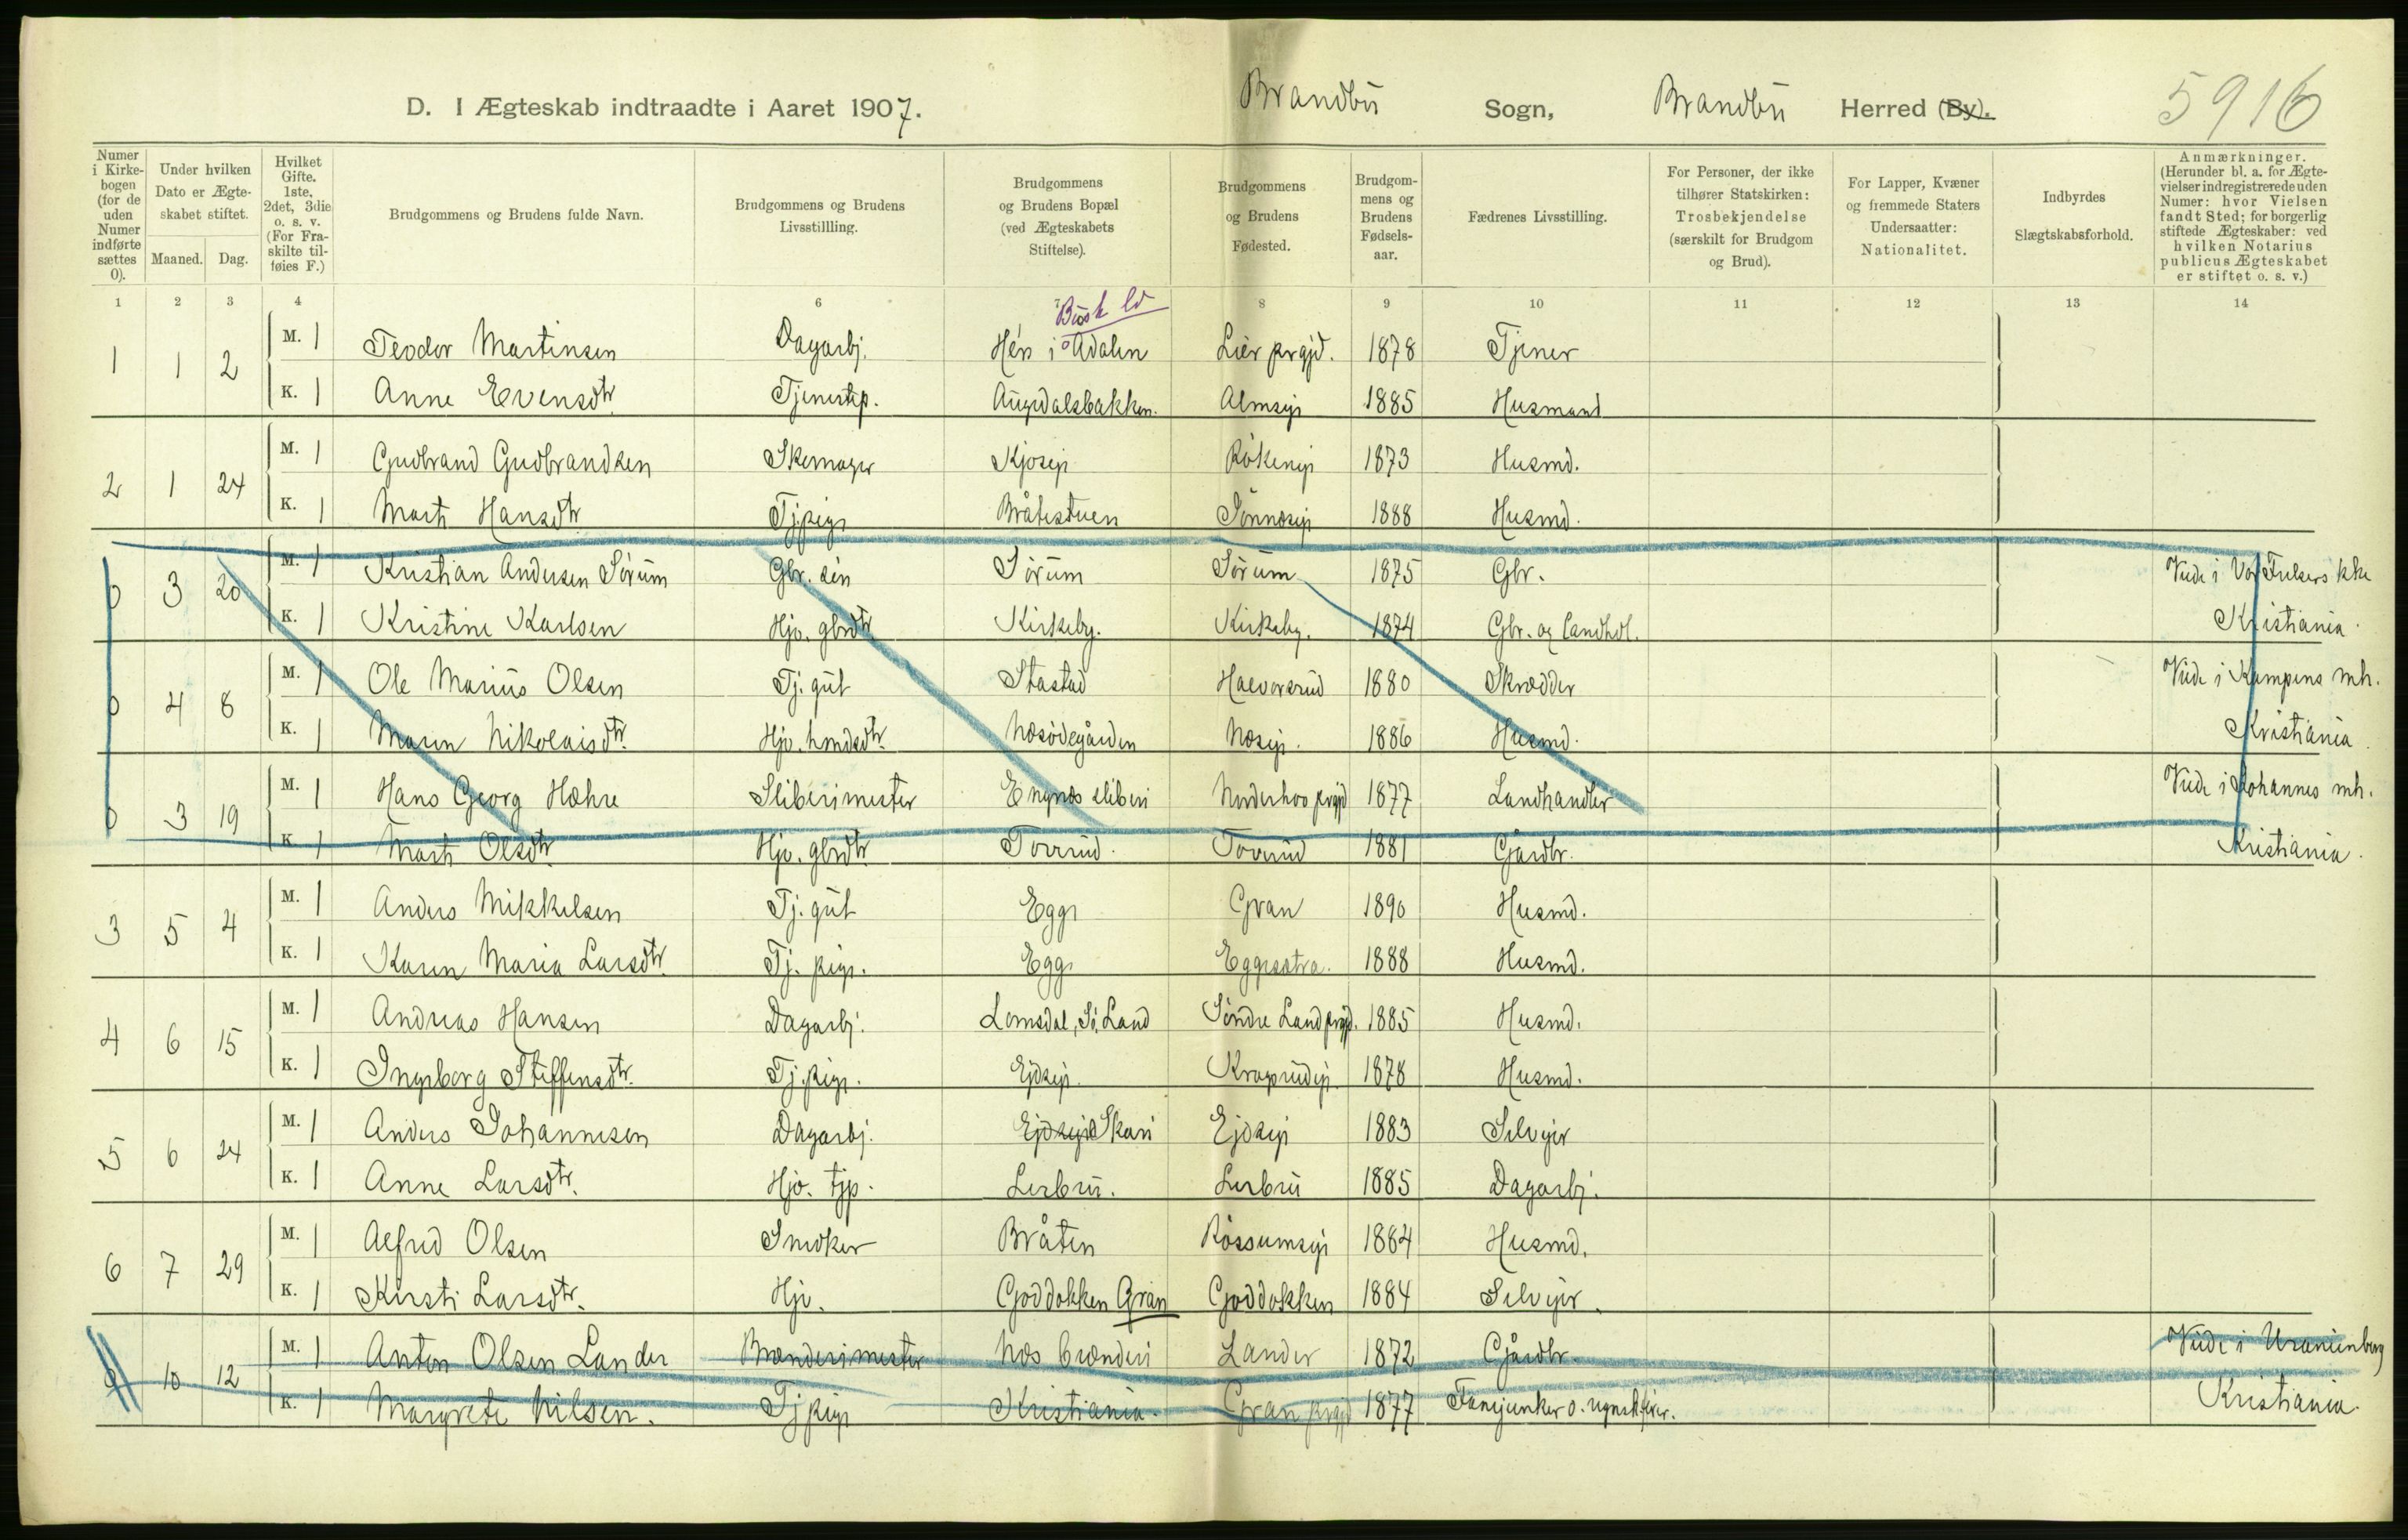 D. I Ægteskab indtraadte i Aaret 1907. Brandbu Sogn, Brandbu Herred (By). 5916
Numer i Kirkebogen (for de uden Numer indførte sættes 0). Under hvilken Dato er Ægteskabet stiftet. Maaned. Dag. Hvilket Gifte. 1ste, 2det, 3die o. s. v. (For Fraskilte tilføies F.) Brudgommens og Brudens fulde Navn. Brudgommens og Brudens Livsstillling. Brudgommens og Brudens Bopæl (ved Ægteskabets Stiftelse). Brudgommens og Brudens Fødested. Brudgommens og Brudens Fødselsaar. Fædrenes Livsstilling. For Personer, der ikke tilhører Statskirken: Trosbekjendelse (særskilt for Brudgom og Brud). For Lapper, Kvæner og fremmede Staters Undersaatter: Nationalitet. Indbyrdes Slægtskabsforhold. Anmærkninger. (Herunder bl. a. for Ægtevielser indregistrerede uden Numer: hvor Vielsen fandt Sted; for borgerlig stiftede Ægteskaber: ved hvilken Notarius publicus Ægteskabet er stiftet o. s. v.)
1 2 3 4 6 7 8 9 10 11 12 13 14
1 1 2 M. 1 Teodor Martinsen Dagarbj. Hén i Ådalen Lier prgjd. 1878 Tjener
K. 1 Anne Evensdtr. Tjenestep. Augedalsbakken. Almseje 1885 Husmand
2 1 24 M. 1 Gudbrand Gudbrandsen Skomager Kjoseje Røkeneje 1873 Husmd.
K. 1 Marte Hansdtr. Tj.pige Bråtestuen Tønnoseje 1888 Husmd.
0 3 20 M. 1 Kristian Andersen Sørum Gbr. søn Sørum Sørum 1875 Gbr. Viede i Vor Frelsers kke
K. 1 Kristine Karlsen Hjv. gbrdtr. Kirkeby. Kirkeby. 1874 Gbr. og landhdl. Kristiania.
0 4 8 M. 1 Ole Marius Olsen Tj. gut Stastad Halvorsrud 1880 Skrædder Viede i Kampens mh.
K. 1 Maren Nikolaisdtr. Hjv. hmdsdtr. Næsødegården Næseje. 1886 Husmd. Kristiania.
0 3 19 M. 1 Hans Georg Hæhre Sliberimester Engnæs sliberi Norderhov prgjd 1877 Landhandler Viede i Johannes mh.
K. 1 Marte Olsdtr. Hjv. gbrdtr. Torrud. Torrud 1881 Gårdbr. Kristiania.
3 5 4 M. 1 Anders Mikkelsen Tj. gut Egge Gran 1890 Husmd.
K. 1 Karen Maria Larsdtr. Tj. pige. Egge Eggesætra. 1888 Husmd.
4 6 15 M. 1 Andreas Hansen Dagarbj. Lomsdal, Sø. Land Søndre Land prgjd. 1885 Husmd.
K. 1 Ingeborg Steffensdtr. Tj. pige. Ejdseje. Kragerudeje. 1878 Husmd.
5 6 24 M. 1 Anders Johannesen Dagarbj. Ejdseje Skari Ejdseje 1883 Selvejer
K. 1 Anne Larsdtr. Hjv. tjp. Lerbru. Lerbru 1885 Dagarbj.
6 7 29 M. 1 Alfred Olsen Snedker Bråten Røssumseje 1884 Husmd.
K. 1 Kirsti Larsdtr. Hjv. Goddokken Gran Goddokken 1884 Selvejer.
0 10 12 M. 1 Anton Olsen Lander Brænderimester Næs brænderi Lander 1872 Gårdbr. Viede i Uranienborg
K. 1 Margrete Nilsen. Tj pige Kristiania. Gran prgjd 1877 Fanejunker o. regnsk.fører. Kristiania.